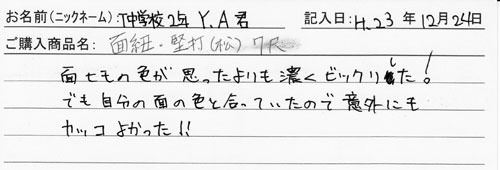 お名前(ニックネーム):T中学校2年 Y.A君 記入日:H.23年12月24日
ご購入商品名:面紐・堅打(松) 7尺
面ヒもの色が思ったよりも濃くビックリした!
でも自分の面の色と合っていたので意外にも
カッコよかった!!